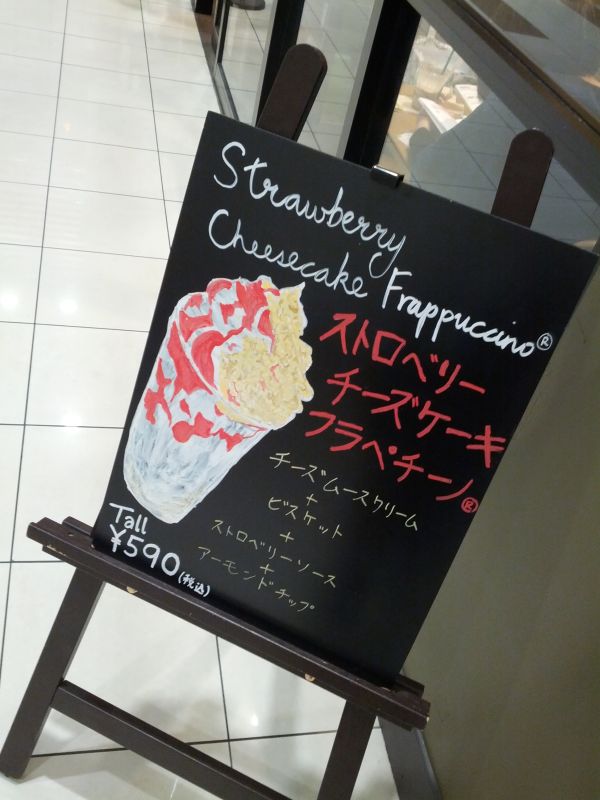 Strawberry
Cheesecake Frappuccino®
ストロベリー
チーズケーキ
フラペチーノ®
チーズムースクリーム
+
ビスケット
+
ストロベリーソース
+
アーモンドチップ
Tall
¥590(税込)